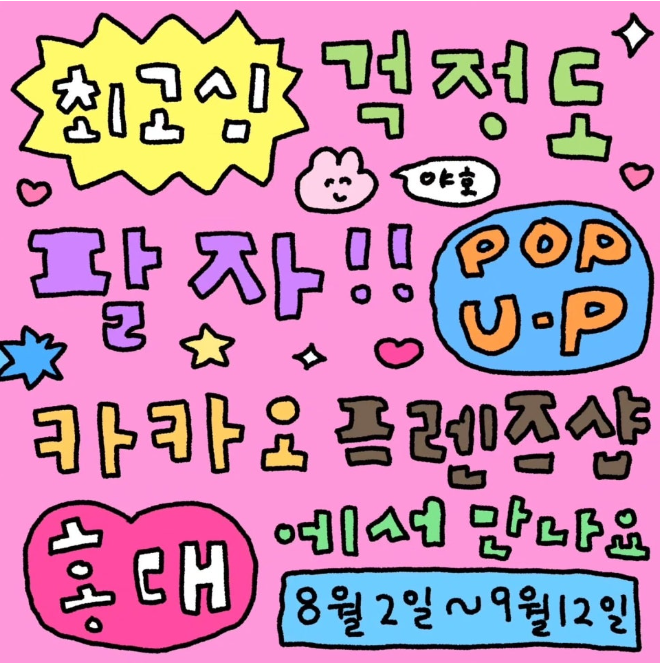 최고심 걱정도
야호
팔자!! POP
U-P
카카오프렌즈샵
홍대 에서 만나요
8월2일~9월12일